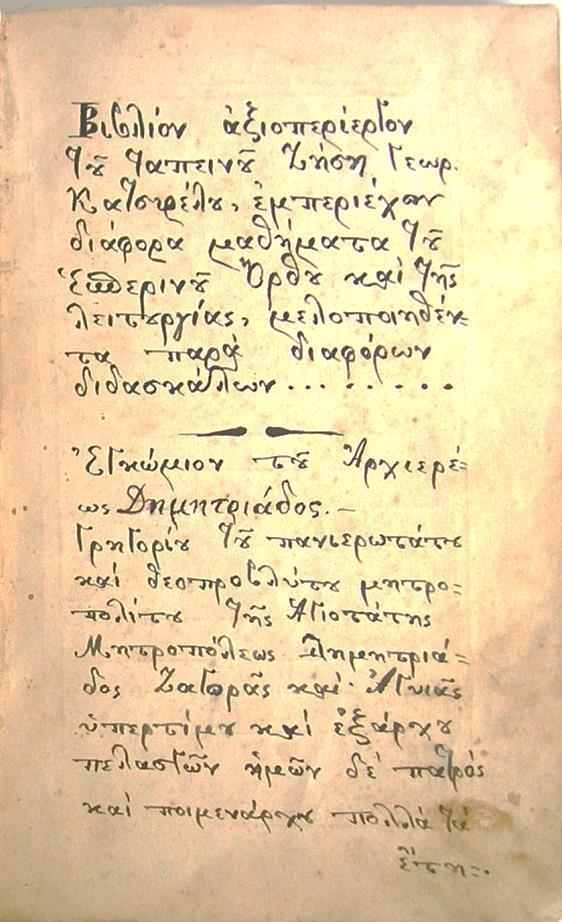 Βιβλίον ἀξιοπερίεργον
τȣ͂ ταπεινȣ͂ Ζήση Γεωρ.
Κατσιρέλȣ, ἐμπεριέχον
διάφορα μαθήματα τȣ͂
Ἑσπερινȣ͂ Ὄρθρȣ καὶ τῆς
λειτȣργίας, μελοποιηθέν=
τα παρὰ διαφόρων
διδασκάλων ... . . . . .
Ἐγκώμιον τȣ͂ Ἀρχιερέ=
ως Δημητριάδος.-
Γρηγορίȣ τȣ͂ πανιερωτάτȣ
καὶ θεοπροβλήτȣ μητρο=
πολίτȣ τῆς Ἁγιοτάτης
Μητροπόλεως Δημητριά=
δος Ζαγορᾶς καὶ Ἀγυιᾶς
ὑπερτίμȣ καὶ ἐξάρχȣ
πελασγῶν ἡμῶν δέ πατρός
καὶ ποιμενάρχȣ πολλά τά
ἔτη=.